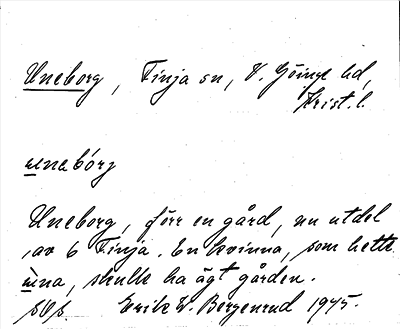 Uneborg, Finja sn, V. Göinge hd,
Krist. l.
u̲nabórg
Uneborg, förr en gård, nu utdel
av 6 Finja. En kvinna, som hette
ù̲na, skulle ha ägt gården.
Erik W. Bergenrud 1945.